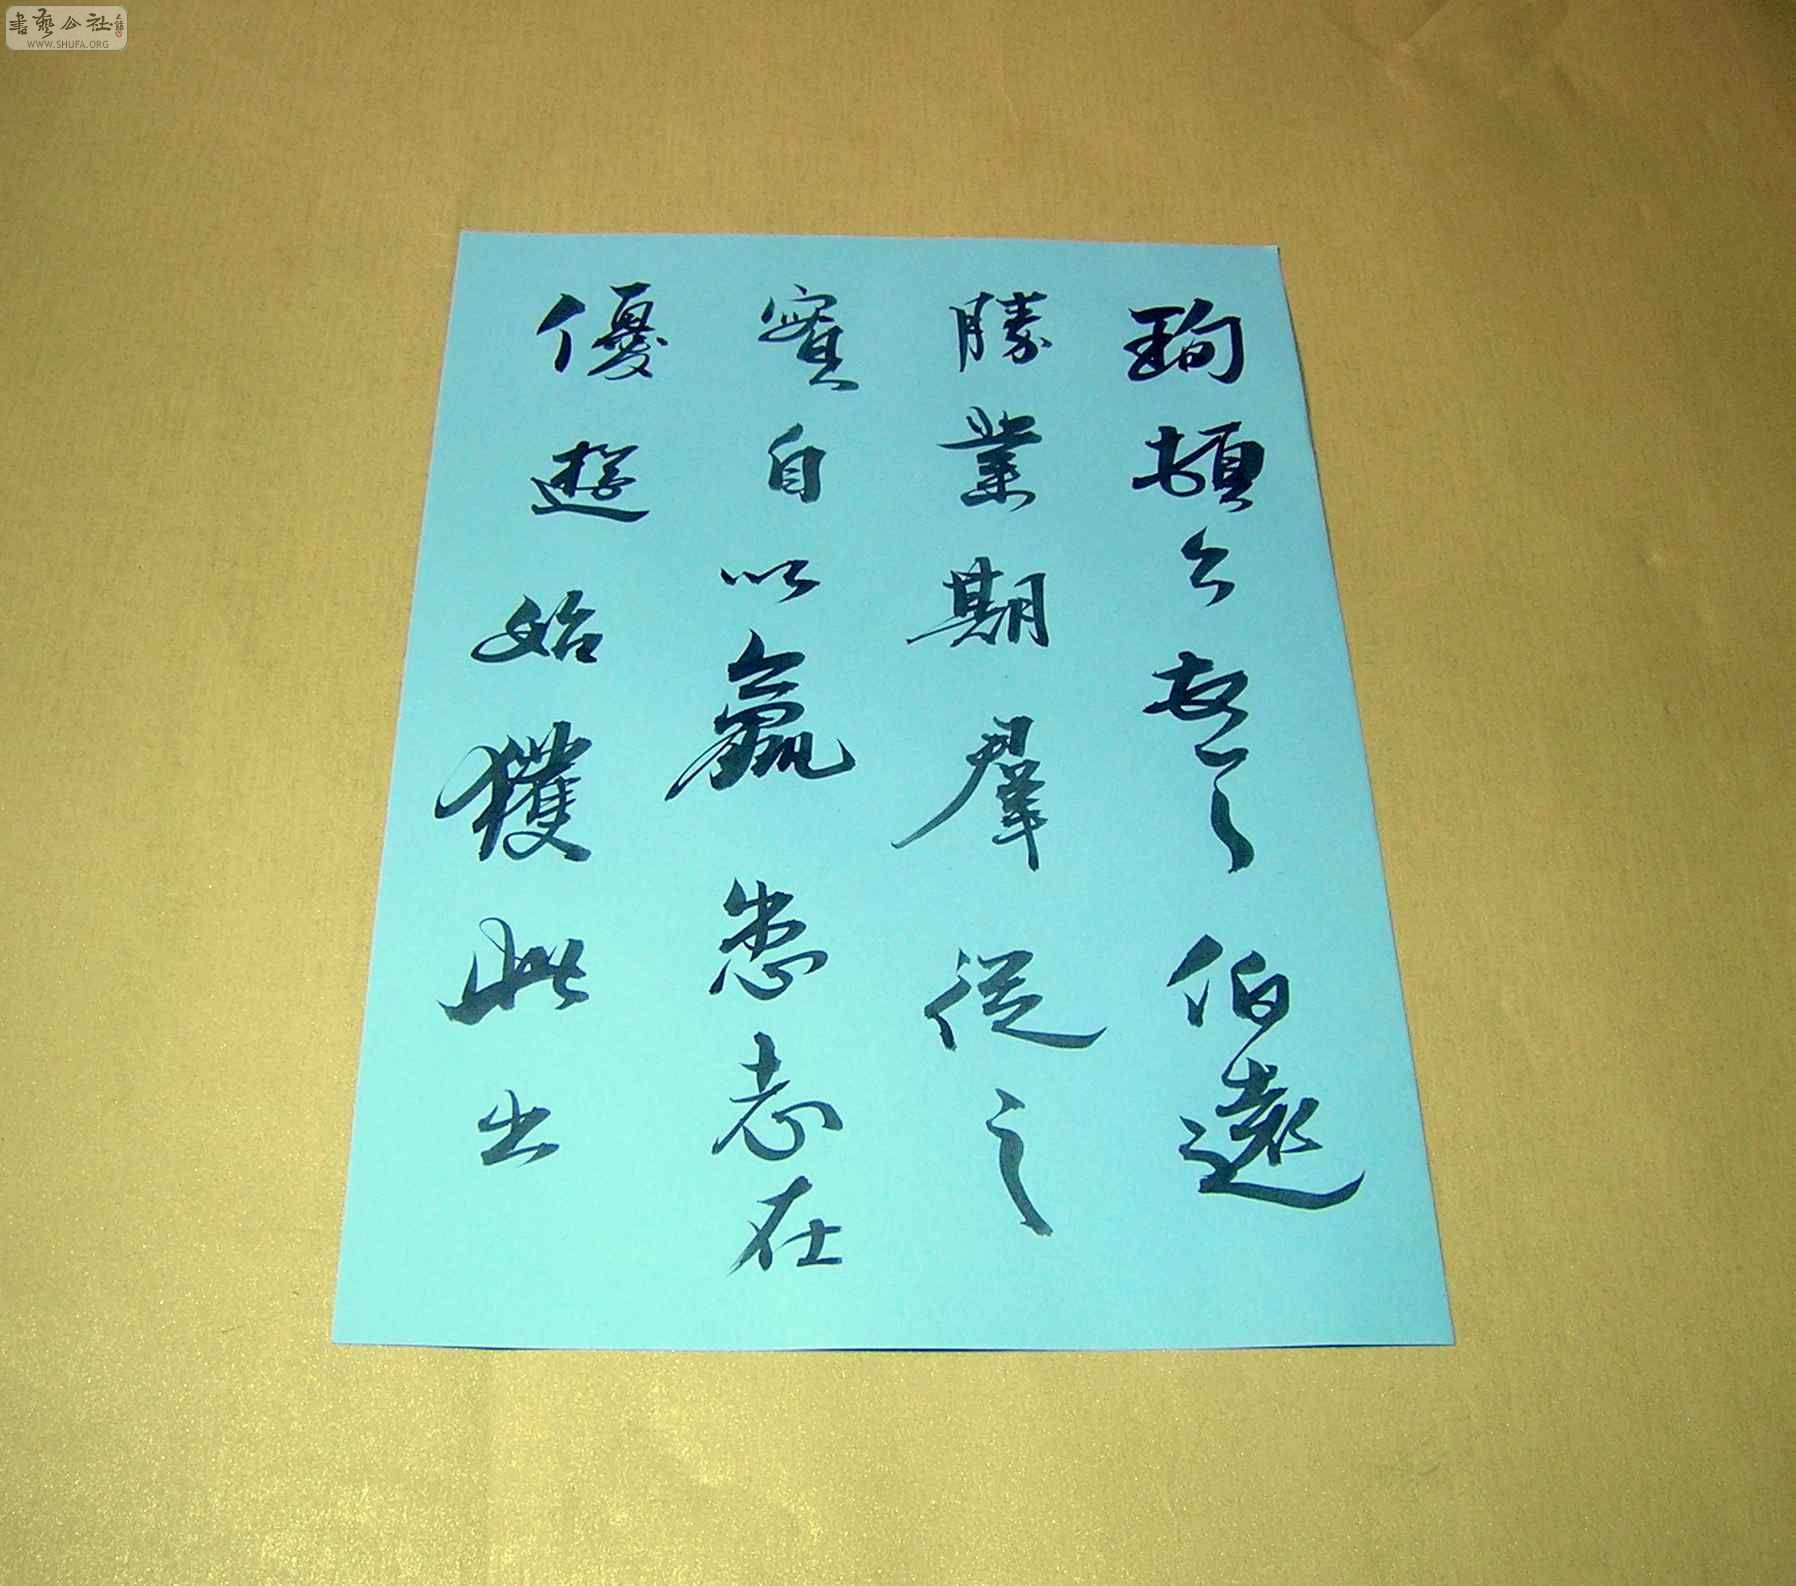 書藝公社
WWW.SHUFA.ORG
珣頓首頓首伯遠
勝業期羣從之
寶自以羸患志在
優遊始獲此出